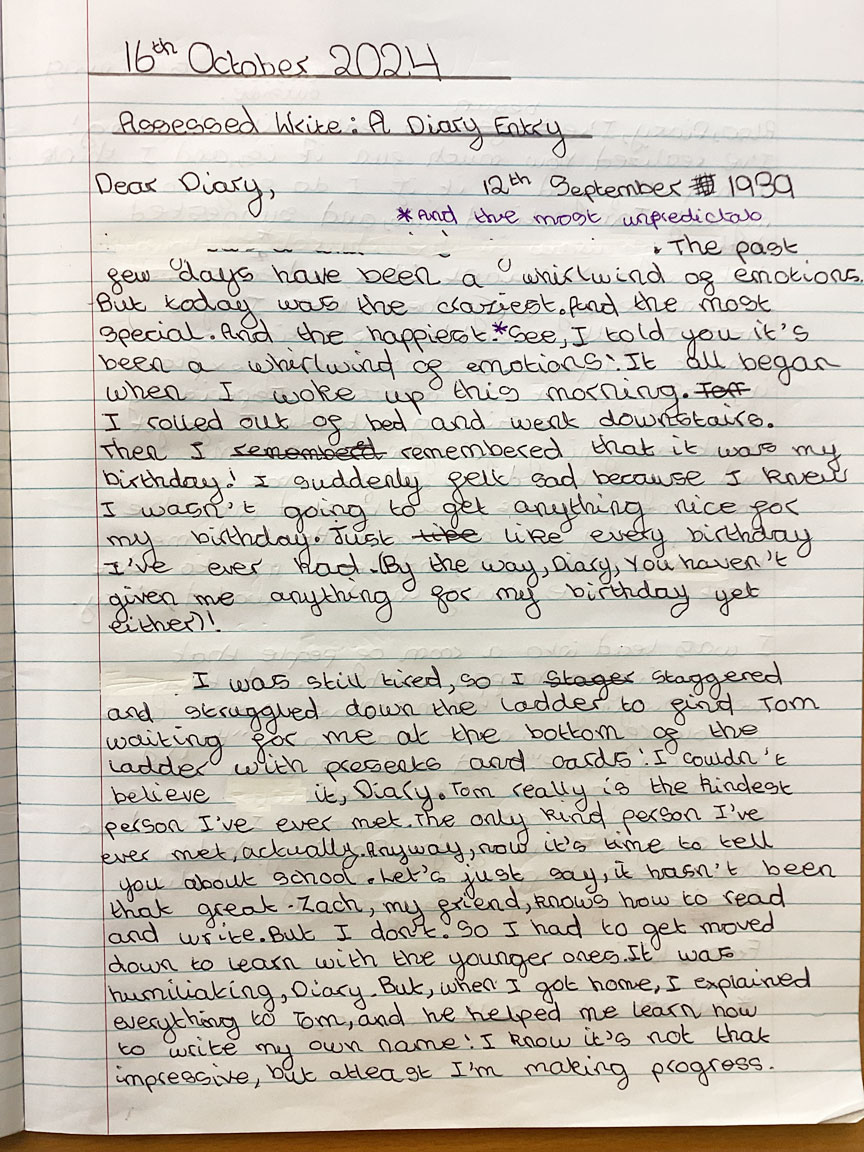 16th October 2024
Assessed Write: A Diary Entry
Dear Diary, 12th September 1939
*And the most unpredictab
. The past
few days have been a whirlwind of emotions.
But today was the craziest. And the most
special. And the happiest.*See, I told you it's
been a whirlwind of emotions! It all began
when I woke up this morning. Toff
I rolled out of bed and went downstairs.
Then I remembered remembered that it was my
birthday! I suddenly felt sad because I knew
I wasn't going to get anything nice for
my birthday. Just like like every birthday
I've ever had. (By the way, Diary, You haven't
given me anything for my birthday yet
either)!
I was still tired, so I stager staggered
and struggled down the ladder to find Tom
waiting for me at the bottom of the
ladder with presents and cards! I couldn't
believe it, Diary. Tom really is the kindest
person I've ever met. The only kind person I've
ever met, actually. Anyway, now it's time to tell
you about school. Let's just say, it hasn't been
that great. Zach, my friend, knows how to read
and write. But I don't. So I had to get moved
down to learn with the younger ones. It was
humiliating, Diary. But, when I got home, I explained
everything to Tom, and he helped me learn how
to write my own name! I know it's not that
impressive, but atleast I'm making progress.